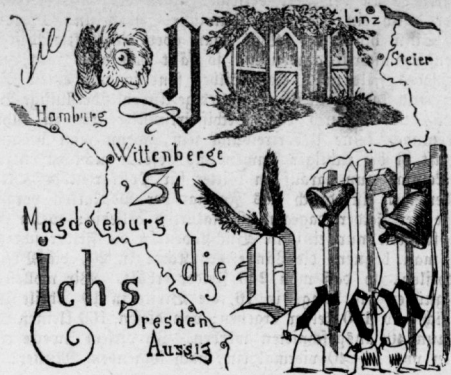 Die
Linz
Steier
Hamburg
Wittenberge
'St
Magdeburg
ichs die
ren
Dresden
Aussig